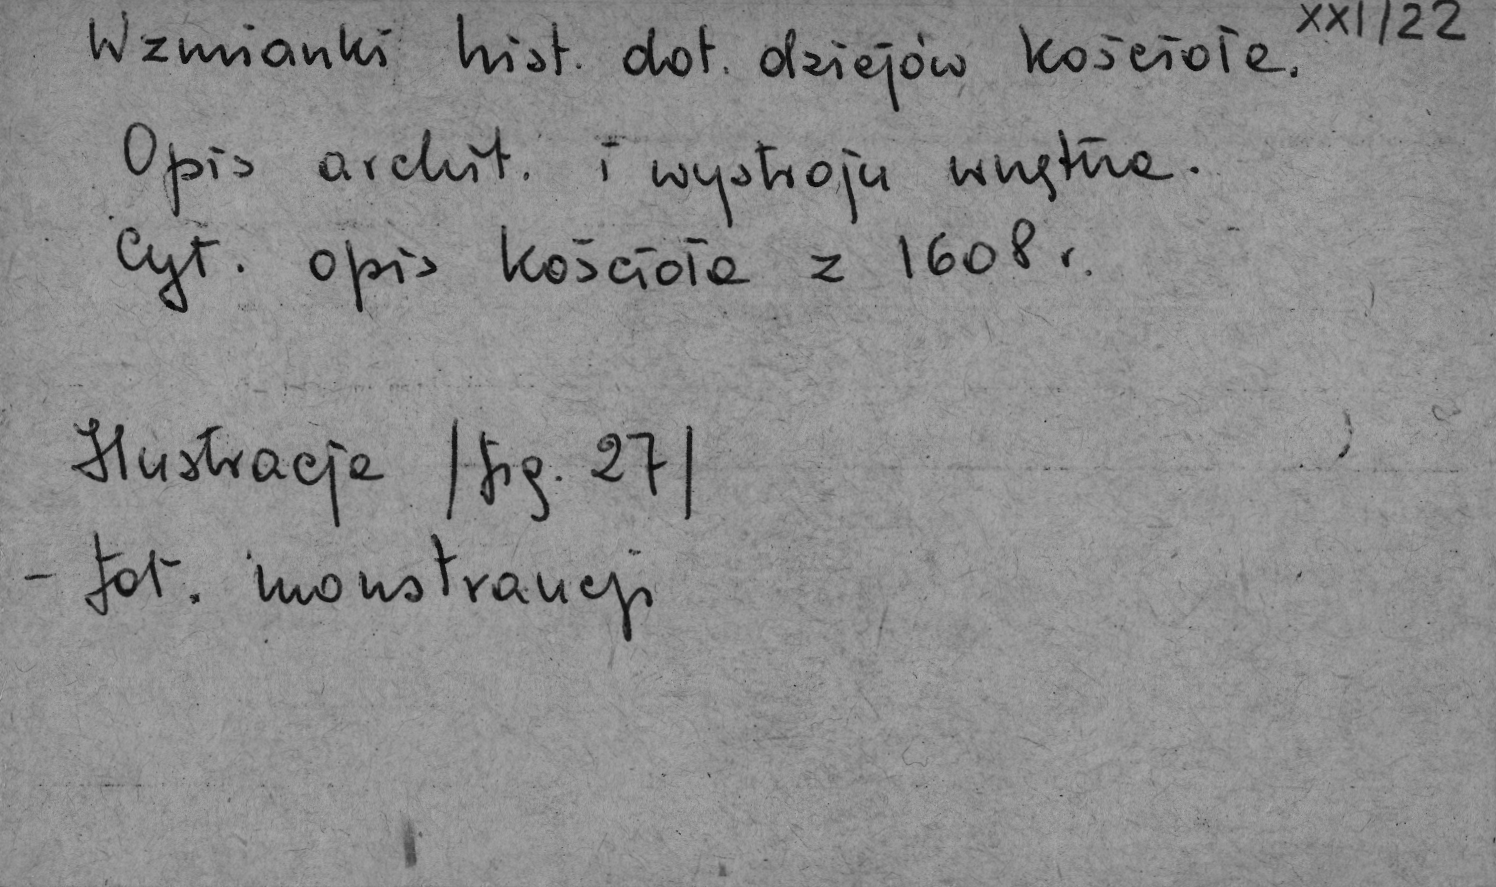 XXI/22
Wzmianki hist. dot. dziejów kościoła.
Opis archit. i wystroju wnętrza.
Cyt. opis kościoła z 1608 r.
Ilustracja /fig. 27/
- fot. monstrancji